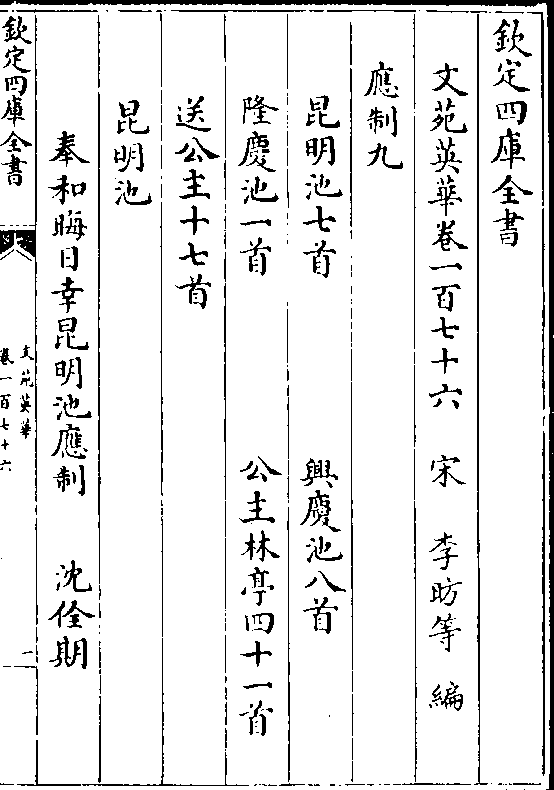 欽定四庫全書
文苑英華卷一百七十六 宋 李昉等 編
應制九
昆明池七首 興慶池八首
隆慶池一首 公主林亭四十一首
送公主十七首
昆明池
奉和晦日幸昆明池應制 沈佺期
欽定四庫全書
文苑英華
卷一百七十六
一